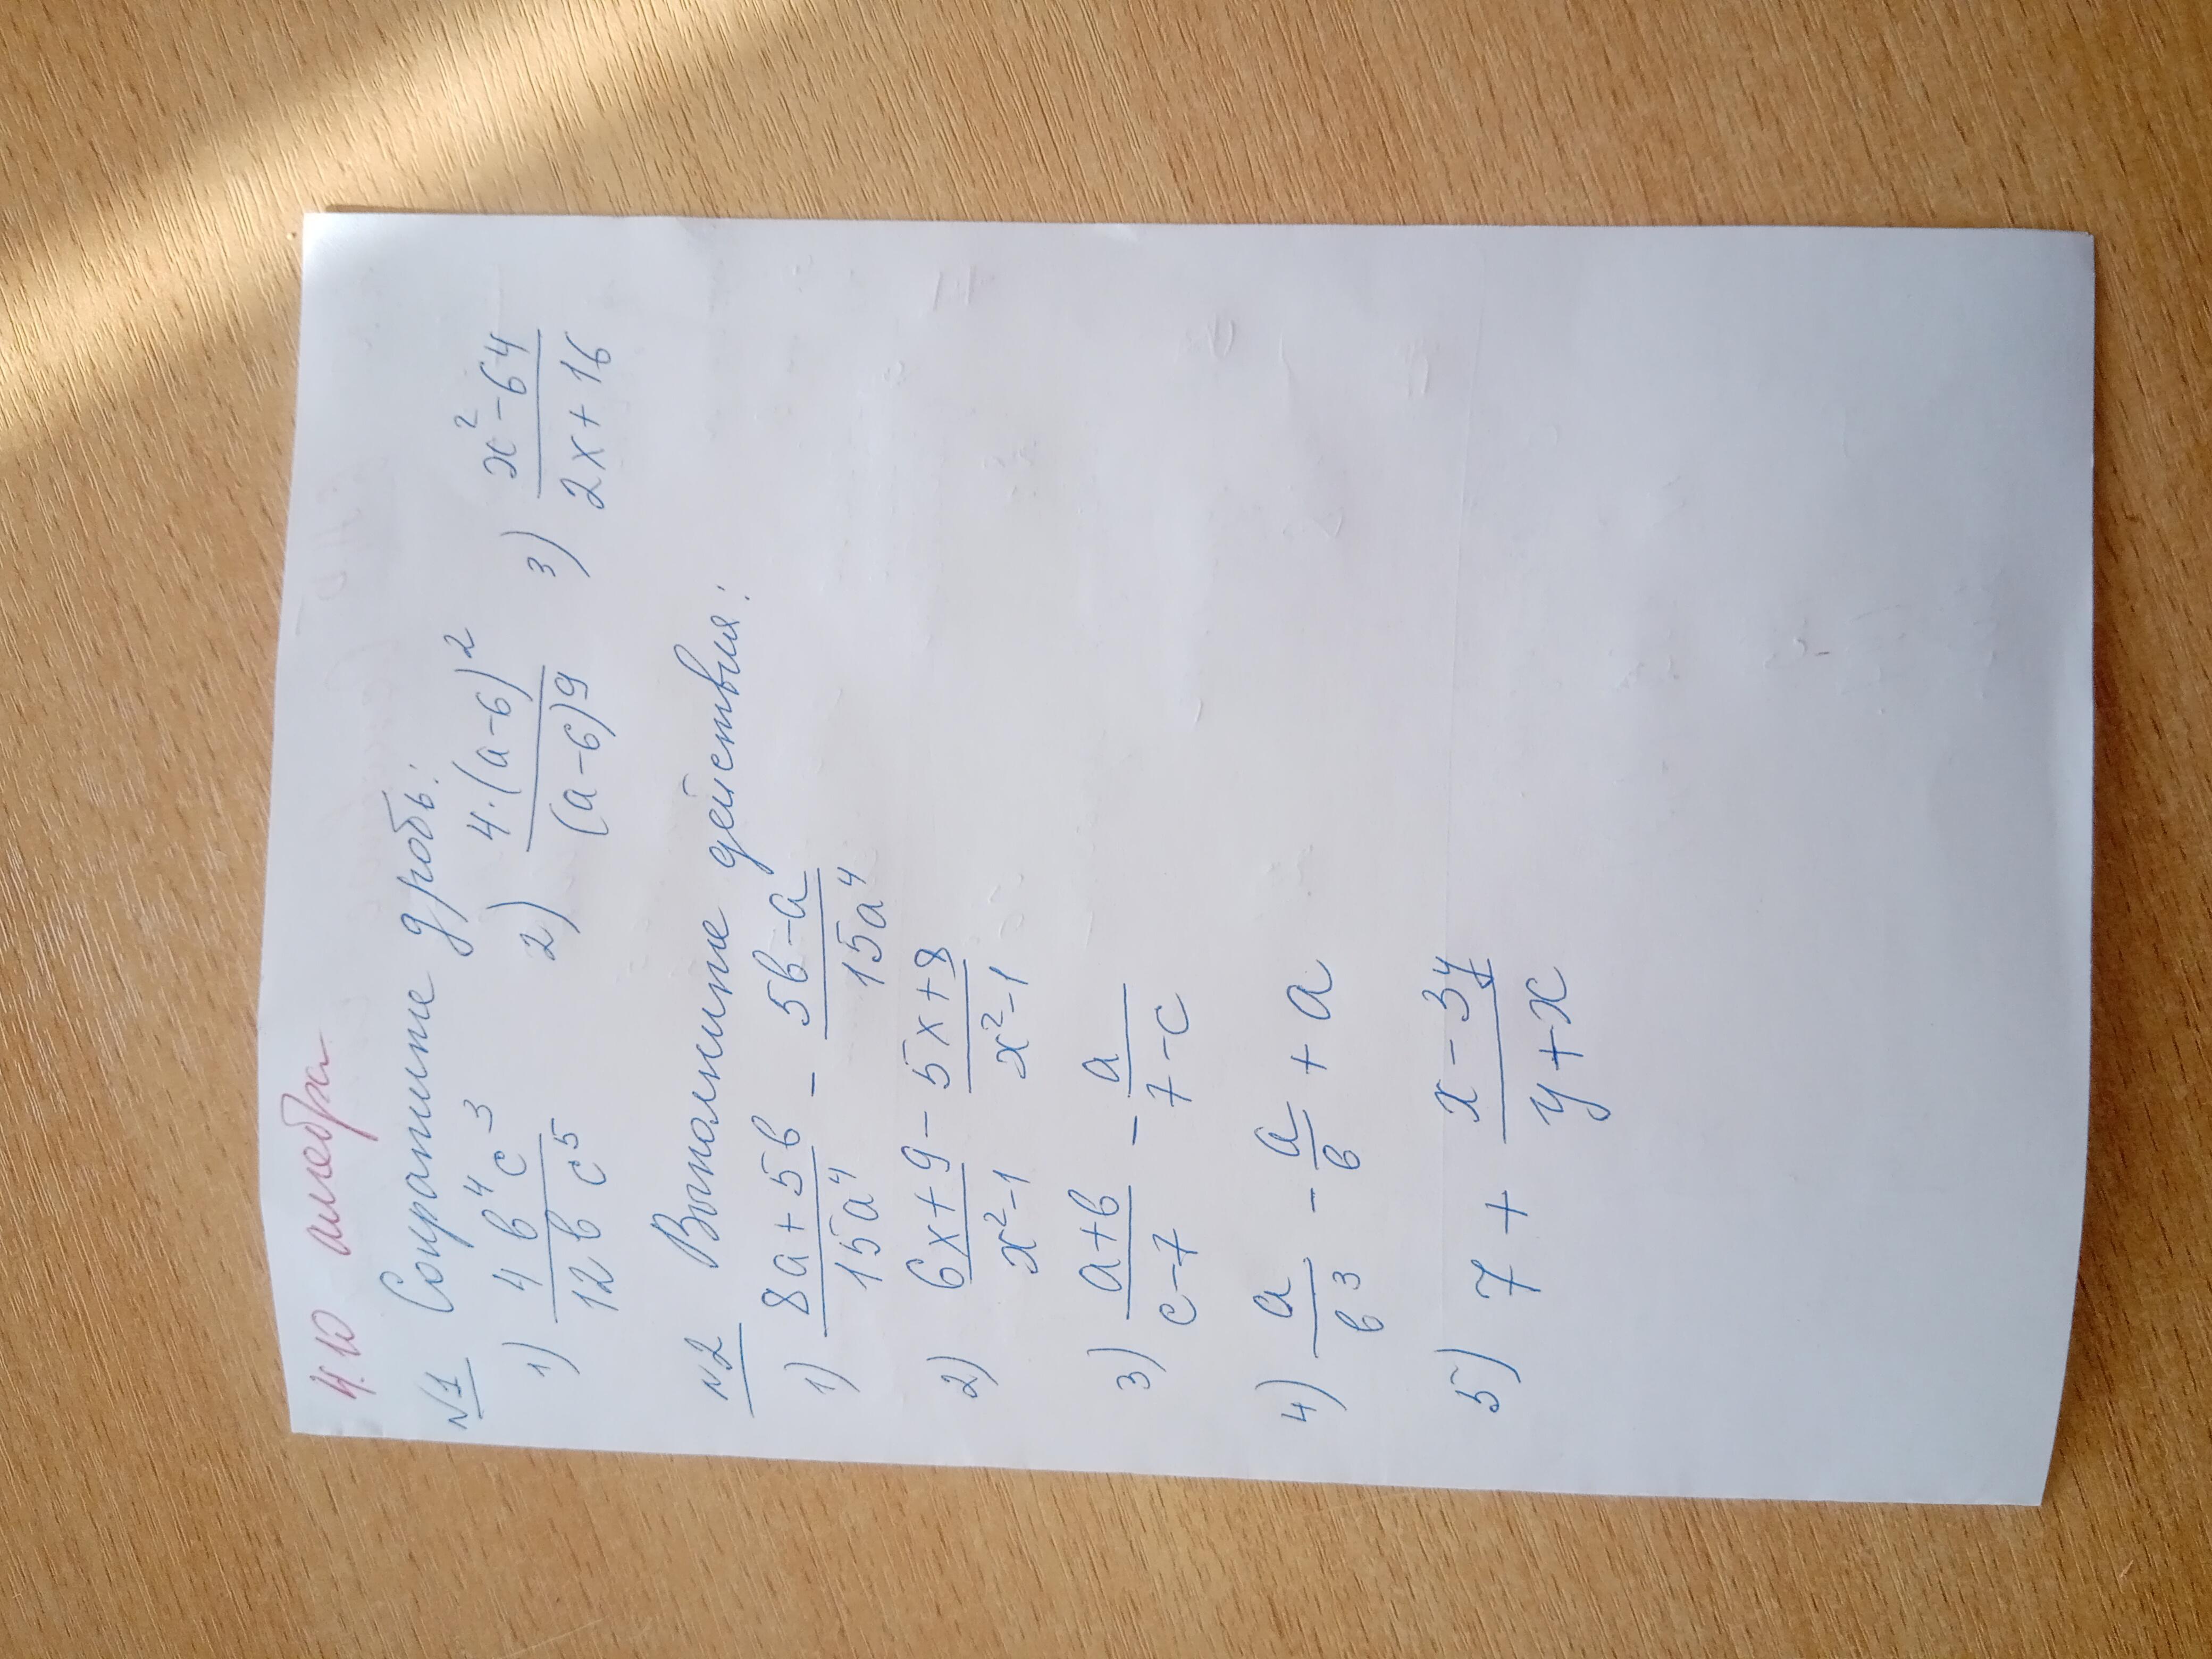 4.10 алгебра
№1 Сократите дробь:
1) 4b⁴c³/12bc⁵ 2) 4·(a-6)²/(a-6)⁹ 3) x²-64/2x+16
№2 Выполните действия:
1) 8a+5b/15a⁴ - 5b-a/15a⁴
2) 6x+9/x²-1 - 5x+8/x²-1
3) a+b/c-7 - a/7-c
4) a/b³ - a/b + a
5) 7 + x-3y/y+x